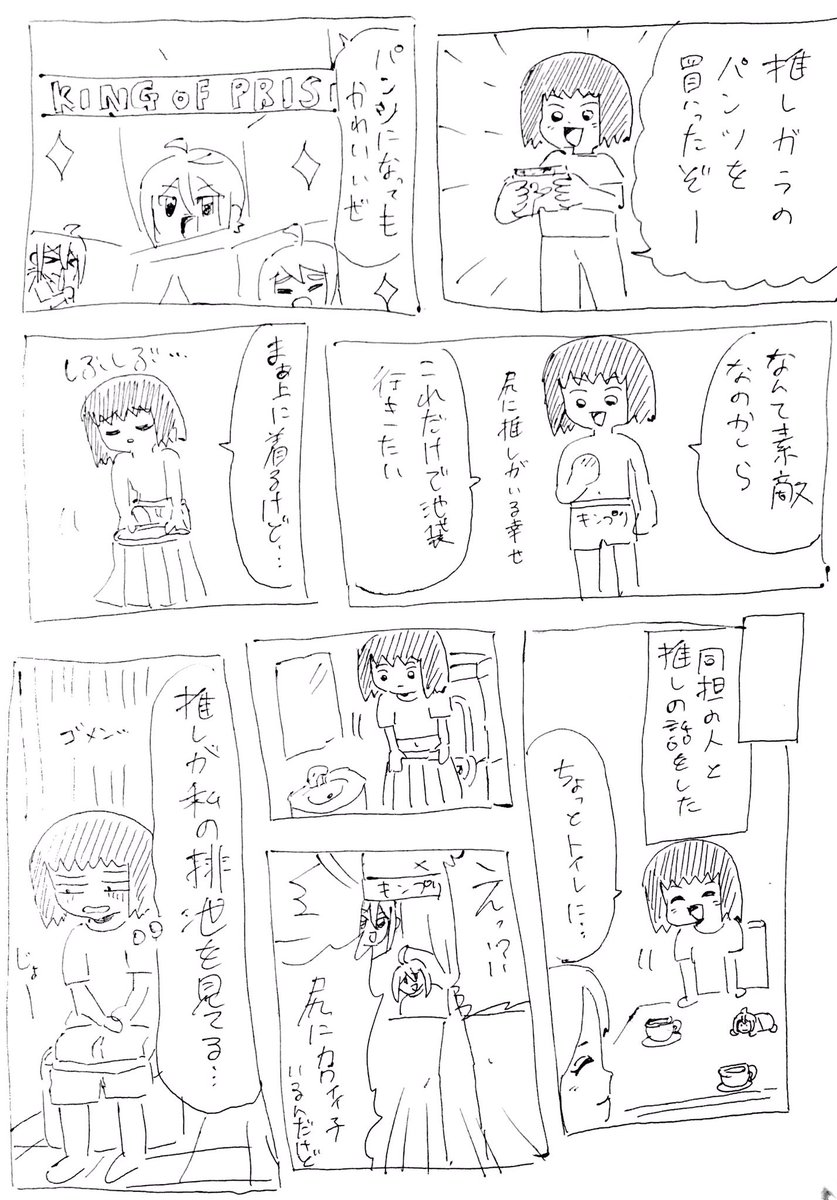 推しガラの
パンツを
買ったぞー
パンツになっても
かわいいぜ
KING OF PRIS
なんて素敵
なのかしら
キンプリ
尻に推しがいる幸せ
これだけで池袋
行きたい
まぁ上に着るけど…
しぶしぶ…
同担の人と
推しの話をした
ちょっとトイレに…
えっ!?
キンプリ
尻にカワイイ子
いるんだけど
推しが私の排泄を見てる…
ゴメン…
じょー